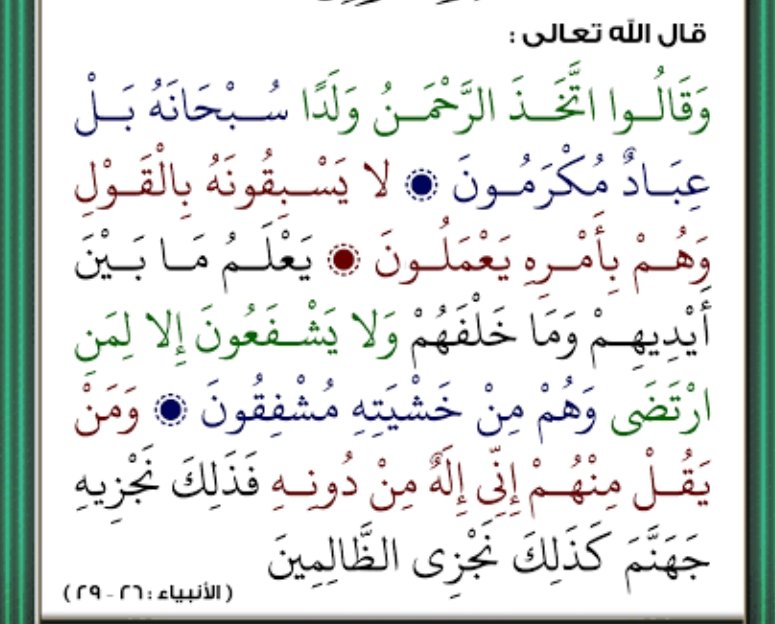 قال الله تعالى :
وَقَالُـوا اتَّخَـذَ الرَّحْمَـنُ وَلَدًا سُـبْحَانَهُ بَـلْ
عِبَـادٌ مُكْرَمُـونَ ۞ لا يَسْـبِقُونَهُ بِالْقَـوْلِ
وَهُـمْ بِأَمْـرِهِ يَعْمَلُـونَ ۞ يَعْلَـمُ مَـا بَـيْنَ
أَيْدِيهِـمْ وَمَا خَلْفَهُمْ وَلا يَشْـفَعُونَ إِلا لِمَنِ
ارْتَضَى وَهُمْ مِنْ خَشْيَتِهِ مُشْفِقُونَ ۞ وَمَنْ
يَقُـلْ مِنْهُـمْ إِنِّي إِلَهٌ مِنْ دُونِـهِ فَذَلِكَ نَجْزِيهِ
جَهَنَّمَ كَذَلِكَ نَجْزِى الظَّالِمِينَ
(الأنبياء : ٢٦ - ٢٩)